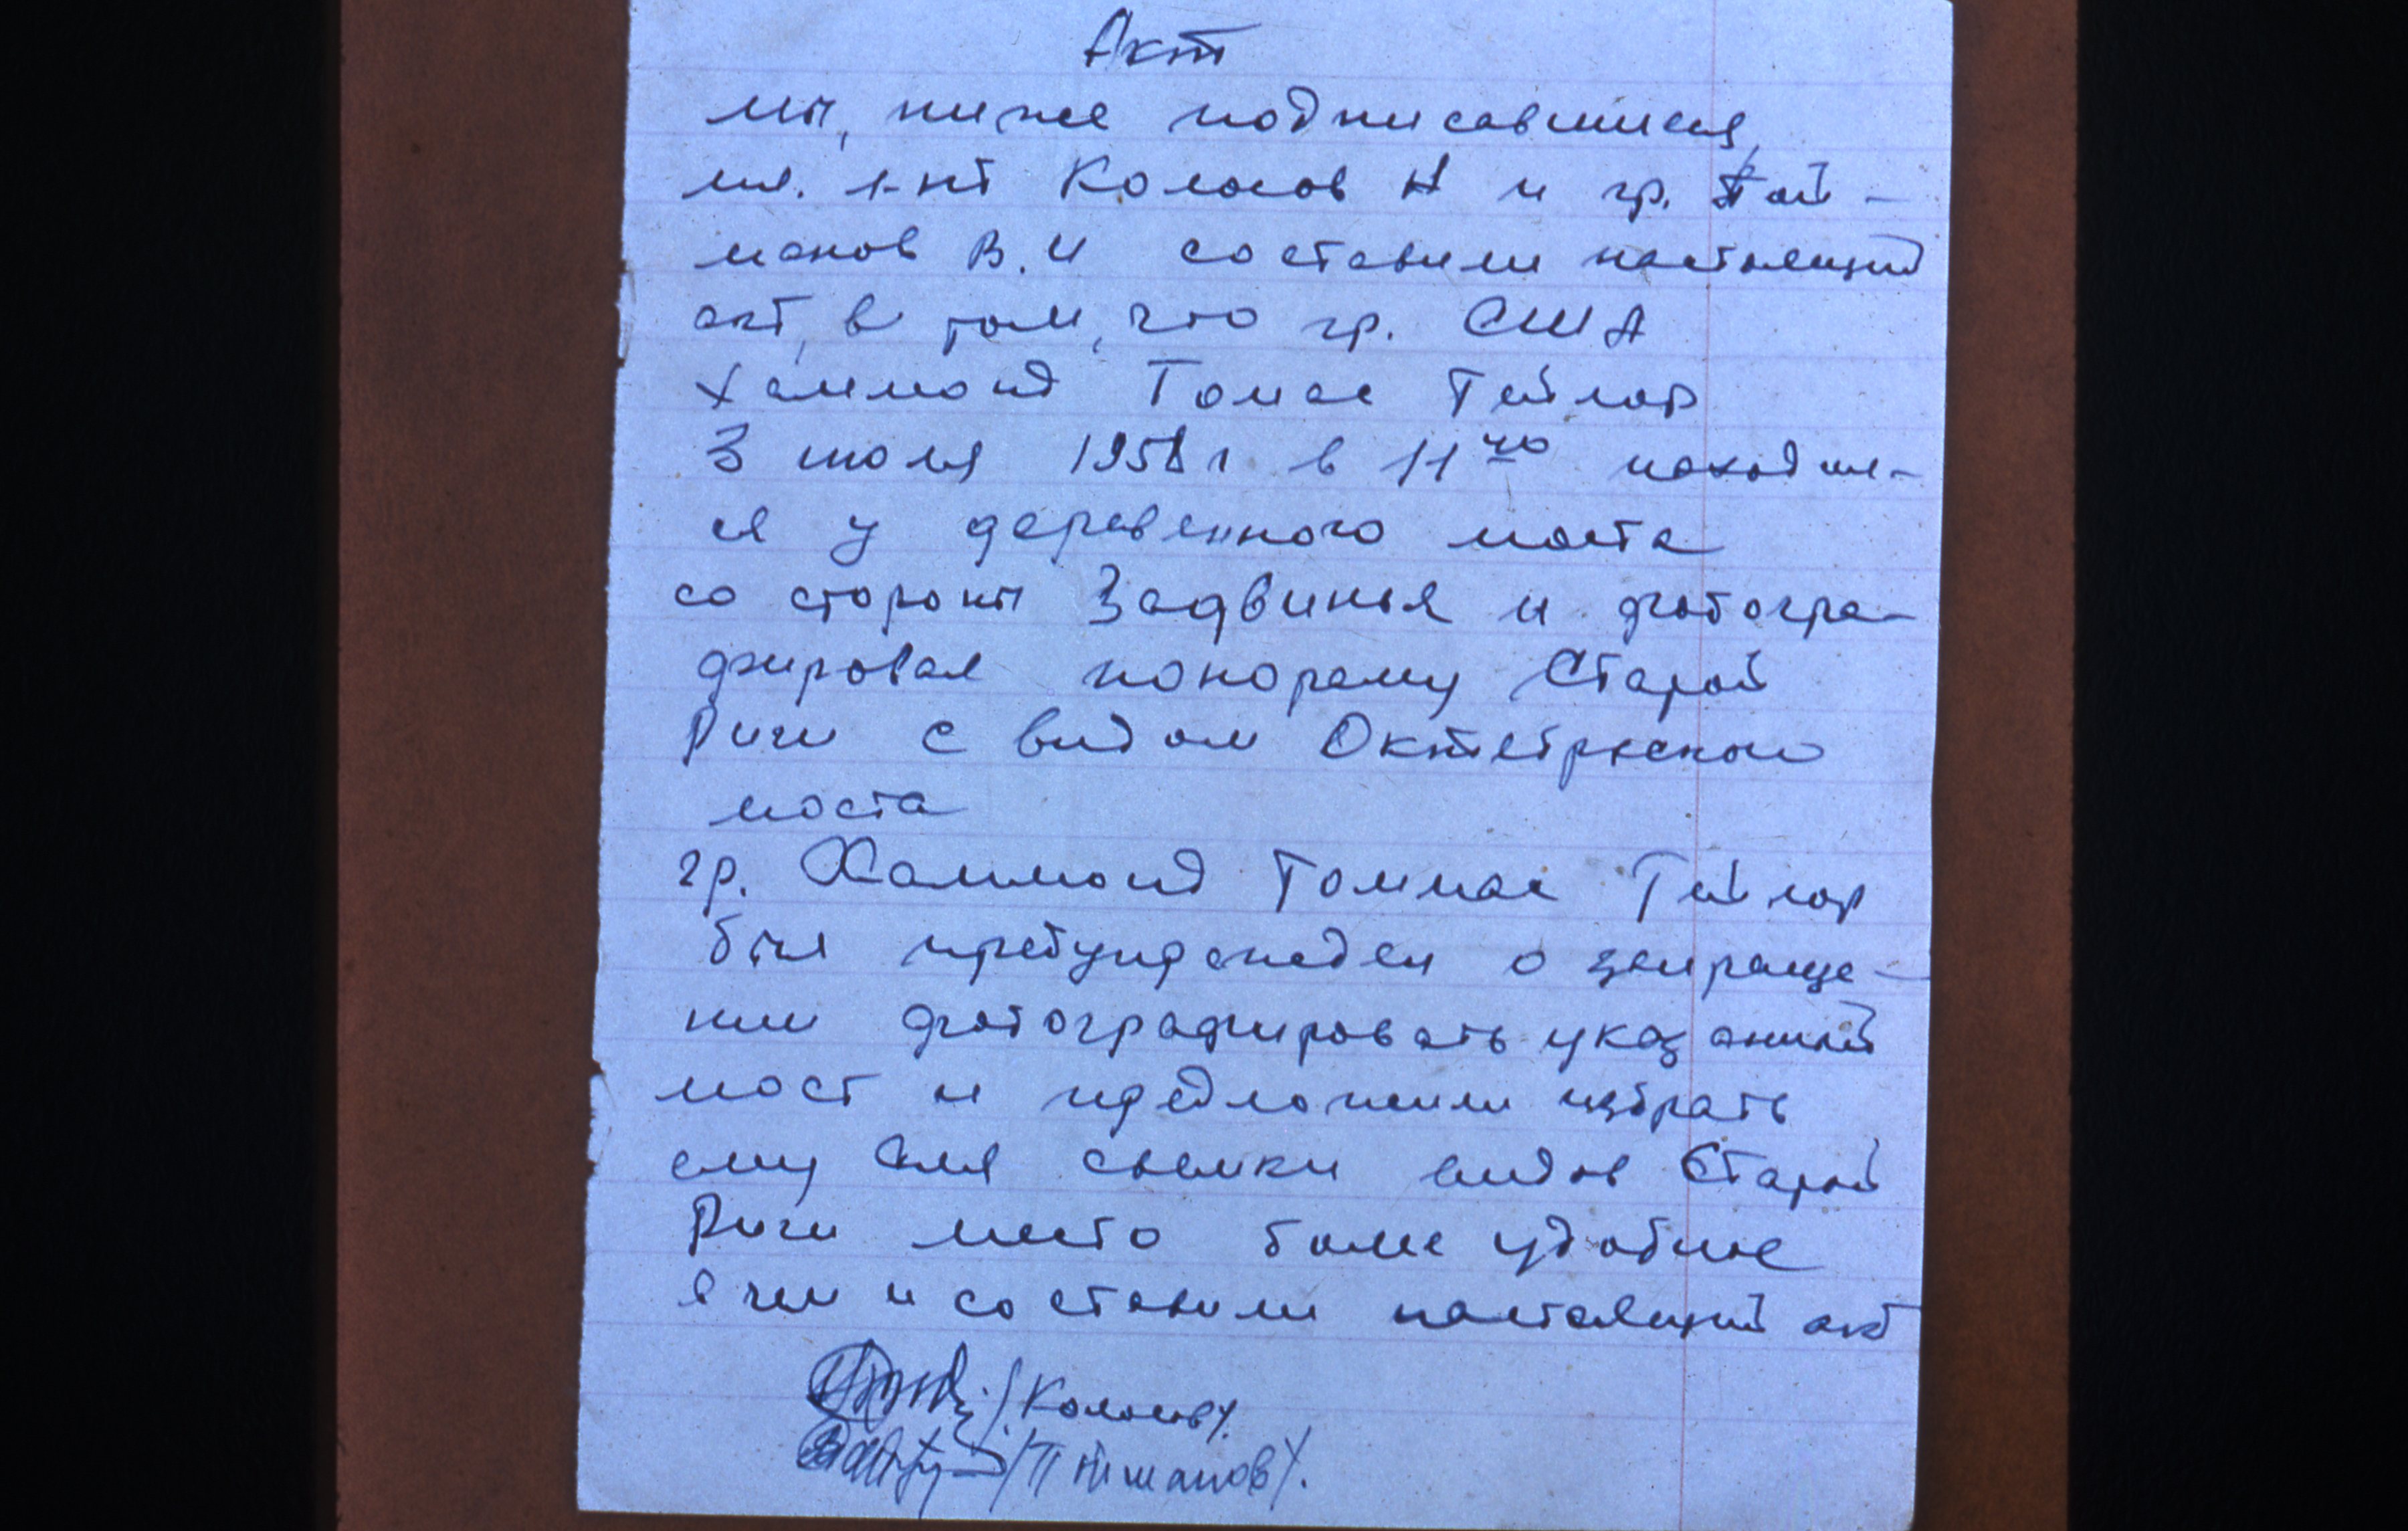 Акт
мы, ниже подписавшиеся,
мл. л-нт Колосов Н и гр. Той-
манов В.И составили настоящий
акт, в том, что гр. США
Хаммонд Томас Тейлор
3 июля 1958 г в 11 находил-
ся у деревенного моста
со стороны Задвинья и фотогра-
фировал панораму Старой
Риги с видом Октябрьского
моста
гр. Хаммонд Томмас Тейлор
был предупрежден о запреще-
нии фотографировать указанный
мост и предложили избрать
ему для съемки видов Старой
Риги место более удобное
в чем и составили настоящий акт
/Колосов/.